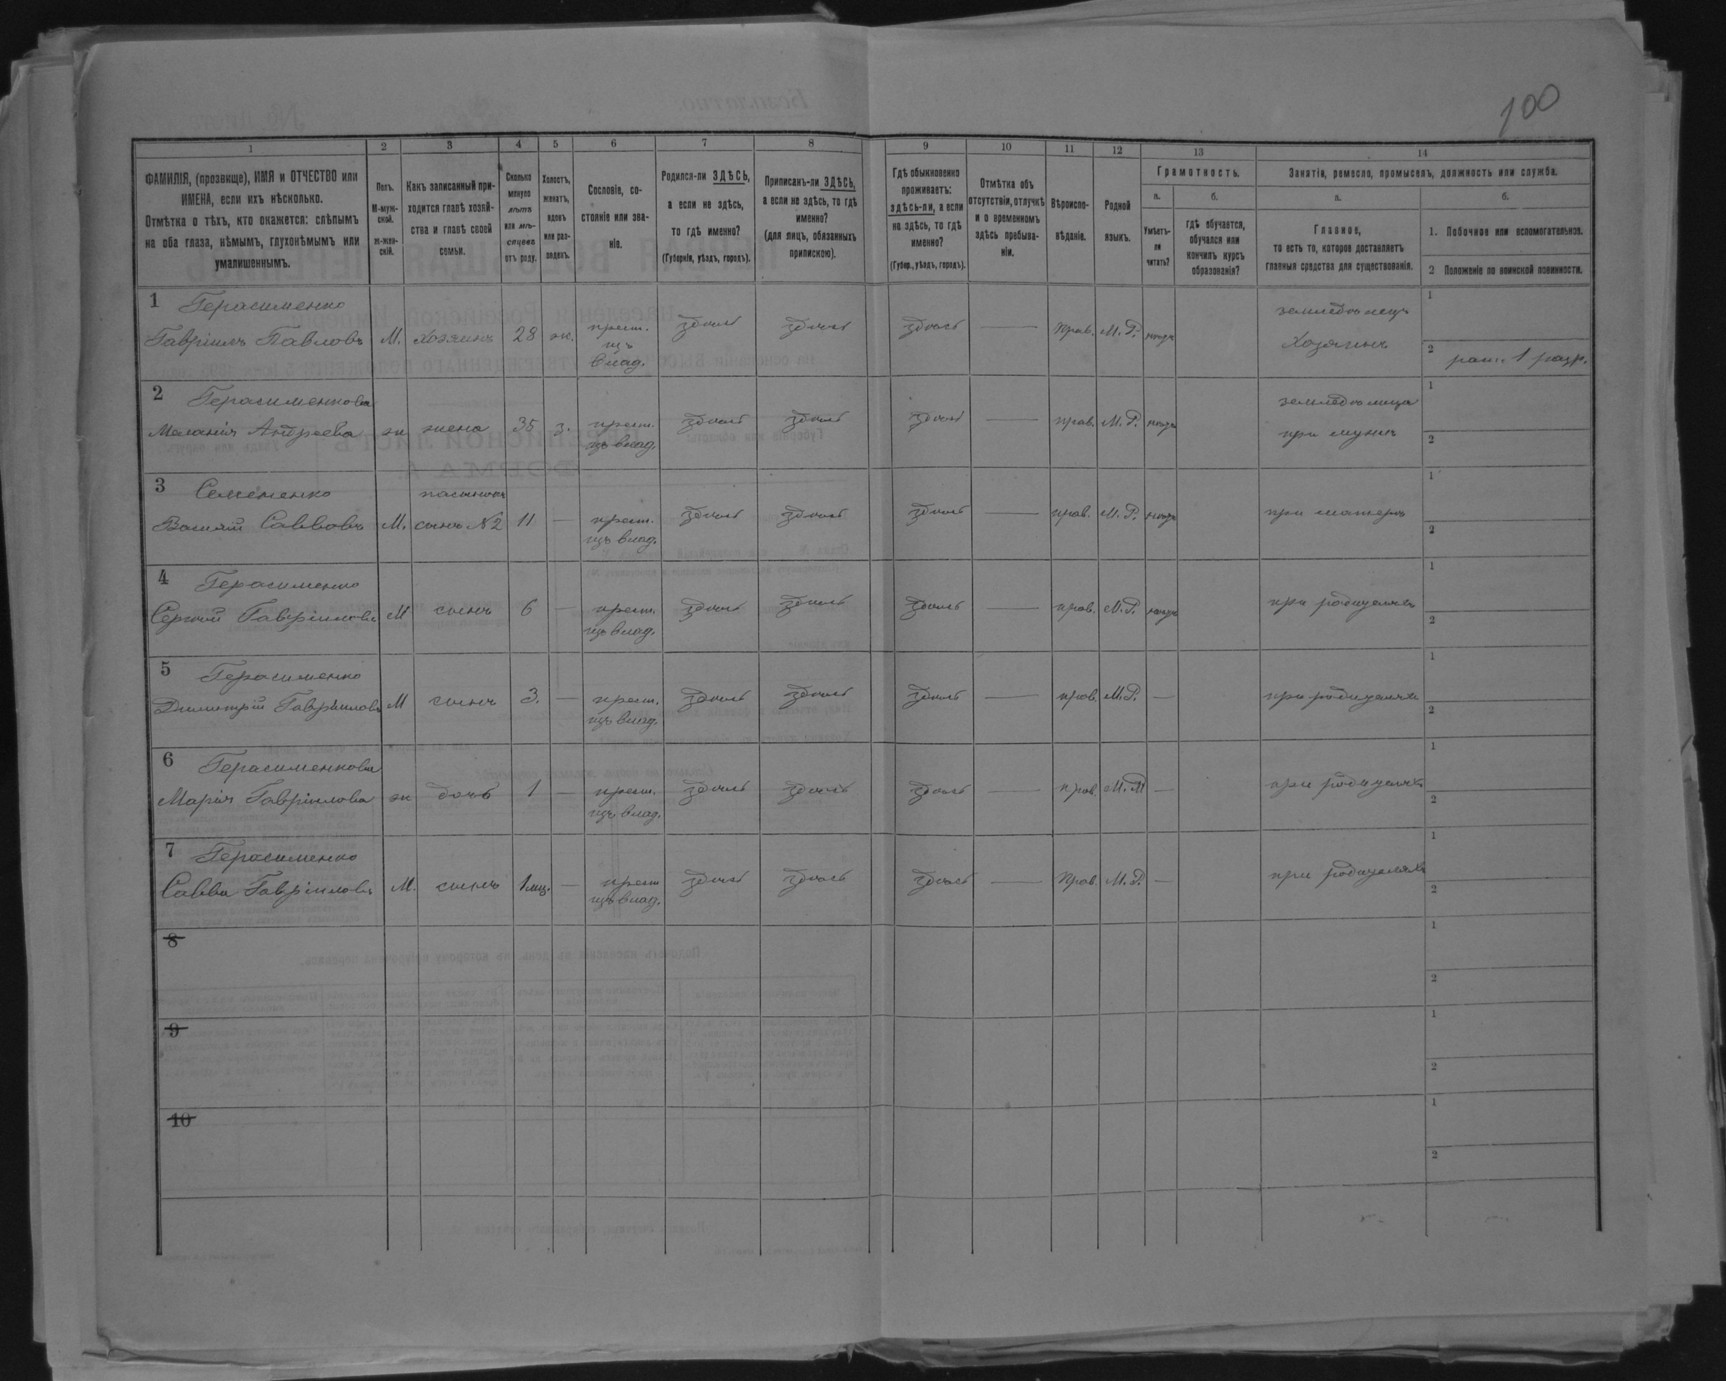 100
1 2 3 4 5 6 7 8 9 10 11 12 13 14
ФАМИЛІЯ, (прозвище), ИМЯ и ОТЧЕСТВО или
ИМЕНА, если ихъ нѣсколько.
Отмѣтка о тѣхъ, кто окажется: слѣпымъ
на оба глаза, нѣмымъ, глухонѣмымъ или
умалишеннымъ.
Полъ.
М-муж-
ской.
ж-жен-
скій.
Какъ записанный при-
ходится главѣ хозяй-
ства и главѣ своей
семьи.
Сколько
минуло
лѣтъ
или мѣ-
сяцевъ
отъ роду.
Холостъ,
женатъ,
вдовъ
или раз-
веденъ.
Сословіе, со-
стояніе или зва-
ніе.
Родился-ли ЗДѢСЬ,
а если не здѣсь,
то гдѣ именно?
(Губернія, уѣздъ, городъ).
Приписанъ-ли ЗДѢСЬ,
а если не здѣсь, то гдѣ
именно?
(для лицъ, обязанныхъ
припискою).
Гдѣ обыкновенно
проживаетъ:
здѣсь-ли, а если
не здѣсь, то гдѣ
именно?
(Губер., уѣздъ, городъ).
Отмѣтка объ
отсутствіи, отлучкѣ
и о временномъ
здѣсь пребыва-
ніи.
Вѣроиспо-
вѣданіе.
Родной
языкъ.
Грамотность.
а.
Умѣетъ-
ли
читать?
б.
гдѣ обучается,
обучался или
кончилъ курсъ
образованія?
Занятіе, ремесло, промыселъ, должность или служба.
а.
Главное,
то есть то, которое доставляетъ
главныя средства для существованія.
б.
1. Побочное или вспомогательное.
2 Положеніе по воинской повинности.
1 Герасименко
Гавріилъ Павловъ М. хозяинъ 28 ж. крест. изъ влад. здѣсь здѣсь здѣсь — прав. М.Р. нѣтъ земледѣлецъ хозяинъ 1
2 рат. 1 разр.
2 Герасименкова
Меланія Андреева ж жена 35 з. крест. изъ влад. здѣсь здѣсь здѣсь — прав. М.Р. нѣтъ при мужѣ 1
2
3 Семененко
Василій Саввовъ М. пасынокъ сынъ №2 11 — крест. изъ влад. здѣсь здѣсь здѣсь — прав. М.Р. нѣтъ при матери 1
2
4 Герасименко
Сергѣй Гавріиловъ М сынъ 6 — крест. изъ влад. здѣсь здѣсь здѣсь — прав. М.Р. нѣтъ при родителяхъ 1
2
5 Герасименко
Димитрій Гавріиловъ М сынъ 3. — крест. изъ влад. здѣсь здѣсь здѣсь — прав. М.Р. — при родителяхъ 1
2
6 Герасименкова
Марія Гавріилова ж дочь 1 — крест. изъ влад. здѣсь здѣсь здѣсь — прав. — при родителяхъ 1
2
7 Герасименко
Савва Гавріиловъ М. сынъ 1 мц. — крест. изъ влад. здѣсь здѣсь здѣсь — Прав. М.Р. — при родителяхъ 1
2
8 1
2
9 1
2
10 1
2